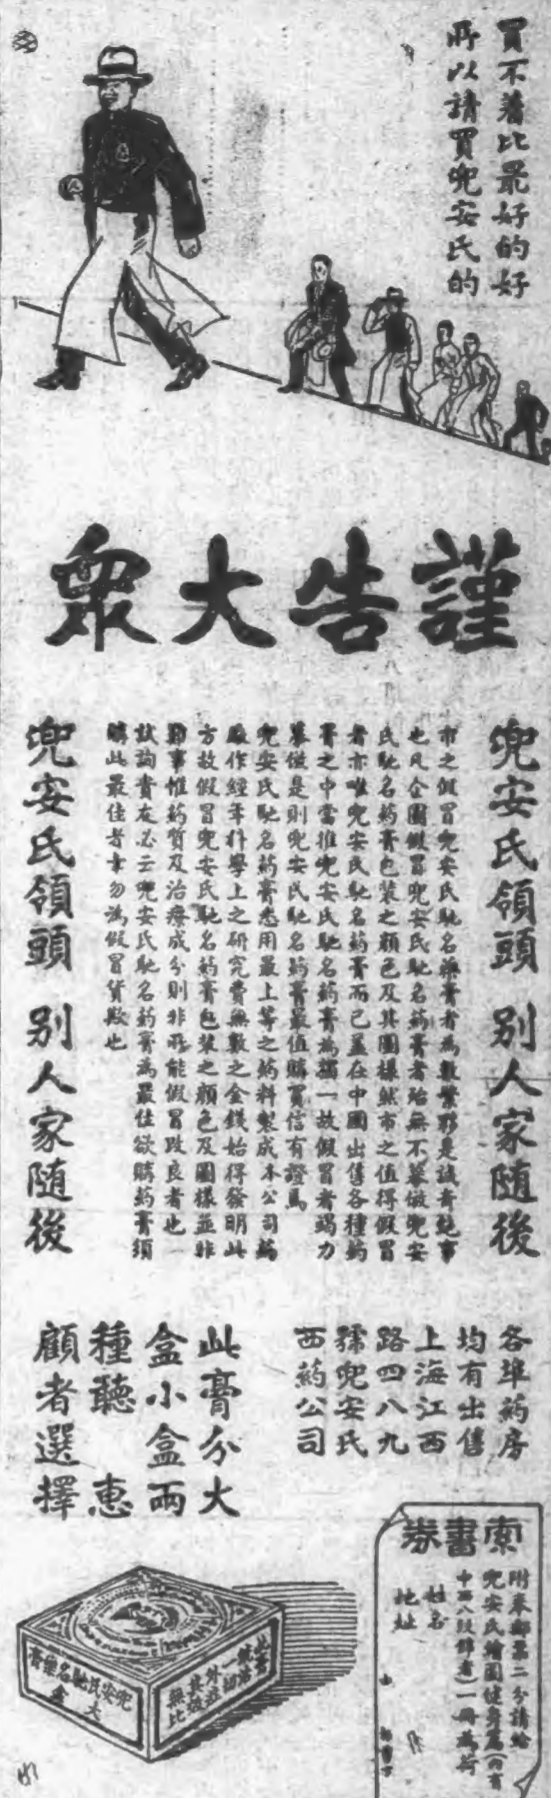 買不着比最好的好
所以請買兜安氏的
謹告大衆
兜安氏領頭 別人家随後
市之假冒兜安氏馳名藥膏者為數繁夥是誠奇絕事
也凡企圖假冒兜安氏馳名葯膏者殆無不摹倣兜安
氏馳名葯膏包裝之顏色及其圖樣然市之值得假冒
者亦唯兜安氏馳名葯膏而已蓋在中國出售各種葯
膏之中當推兜安氏馳名葯膏為獨一故假冒者竭力
摹倣是則兜安氏馳名葯膏最值購買信有證焉
兜安氏馳名葯膏悉用最上等之葯料製成本公司葯
廠作經年科學上之研究費無數之金錢始得發明此
方故假冒兜安氏馳名葯膏包裝之顏色及圖樣並非
難事惟葯質及治療成分則非所能假冒改良者也
試詢貴友必云兜安氏馳名葯膏為最佳欲購葯膏須
購此最佳者幸勿為假冒貨欺也
兜安氏領頭 別人家随後
各埠葯房
均有出售
上海江西
路四八九
號兜安氏
西葯公司
此膏分大
盒小盒兩
種聽 惠
顧者選擇
索書券
附奉郵票二分請給
兜安氏繪圖健身篇(內有
一冊為荷
姓名
地址
兜安氏馳名藥膏
大盒
無比